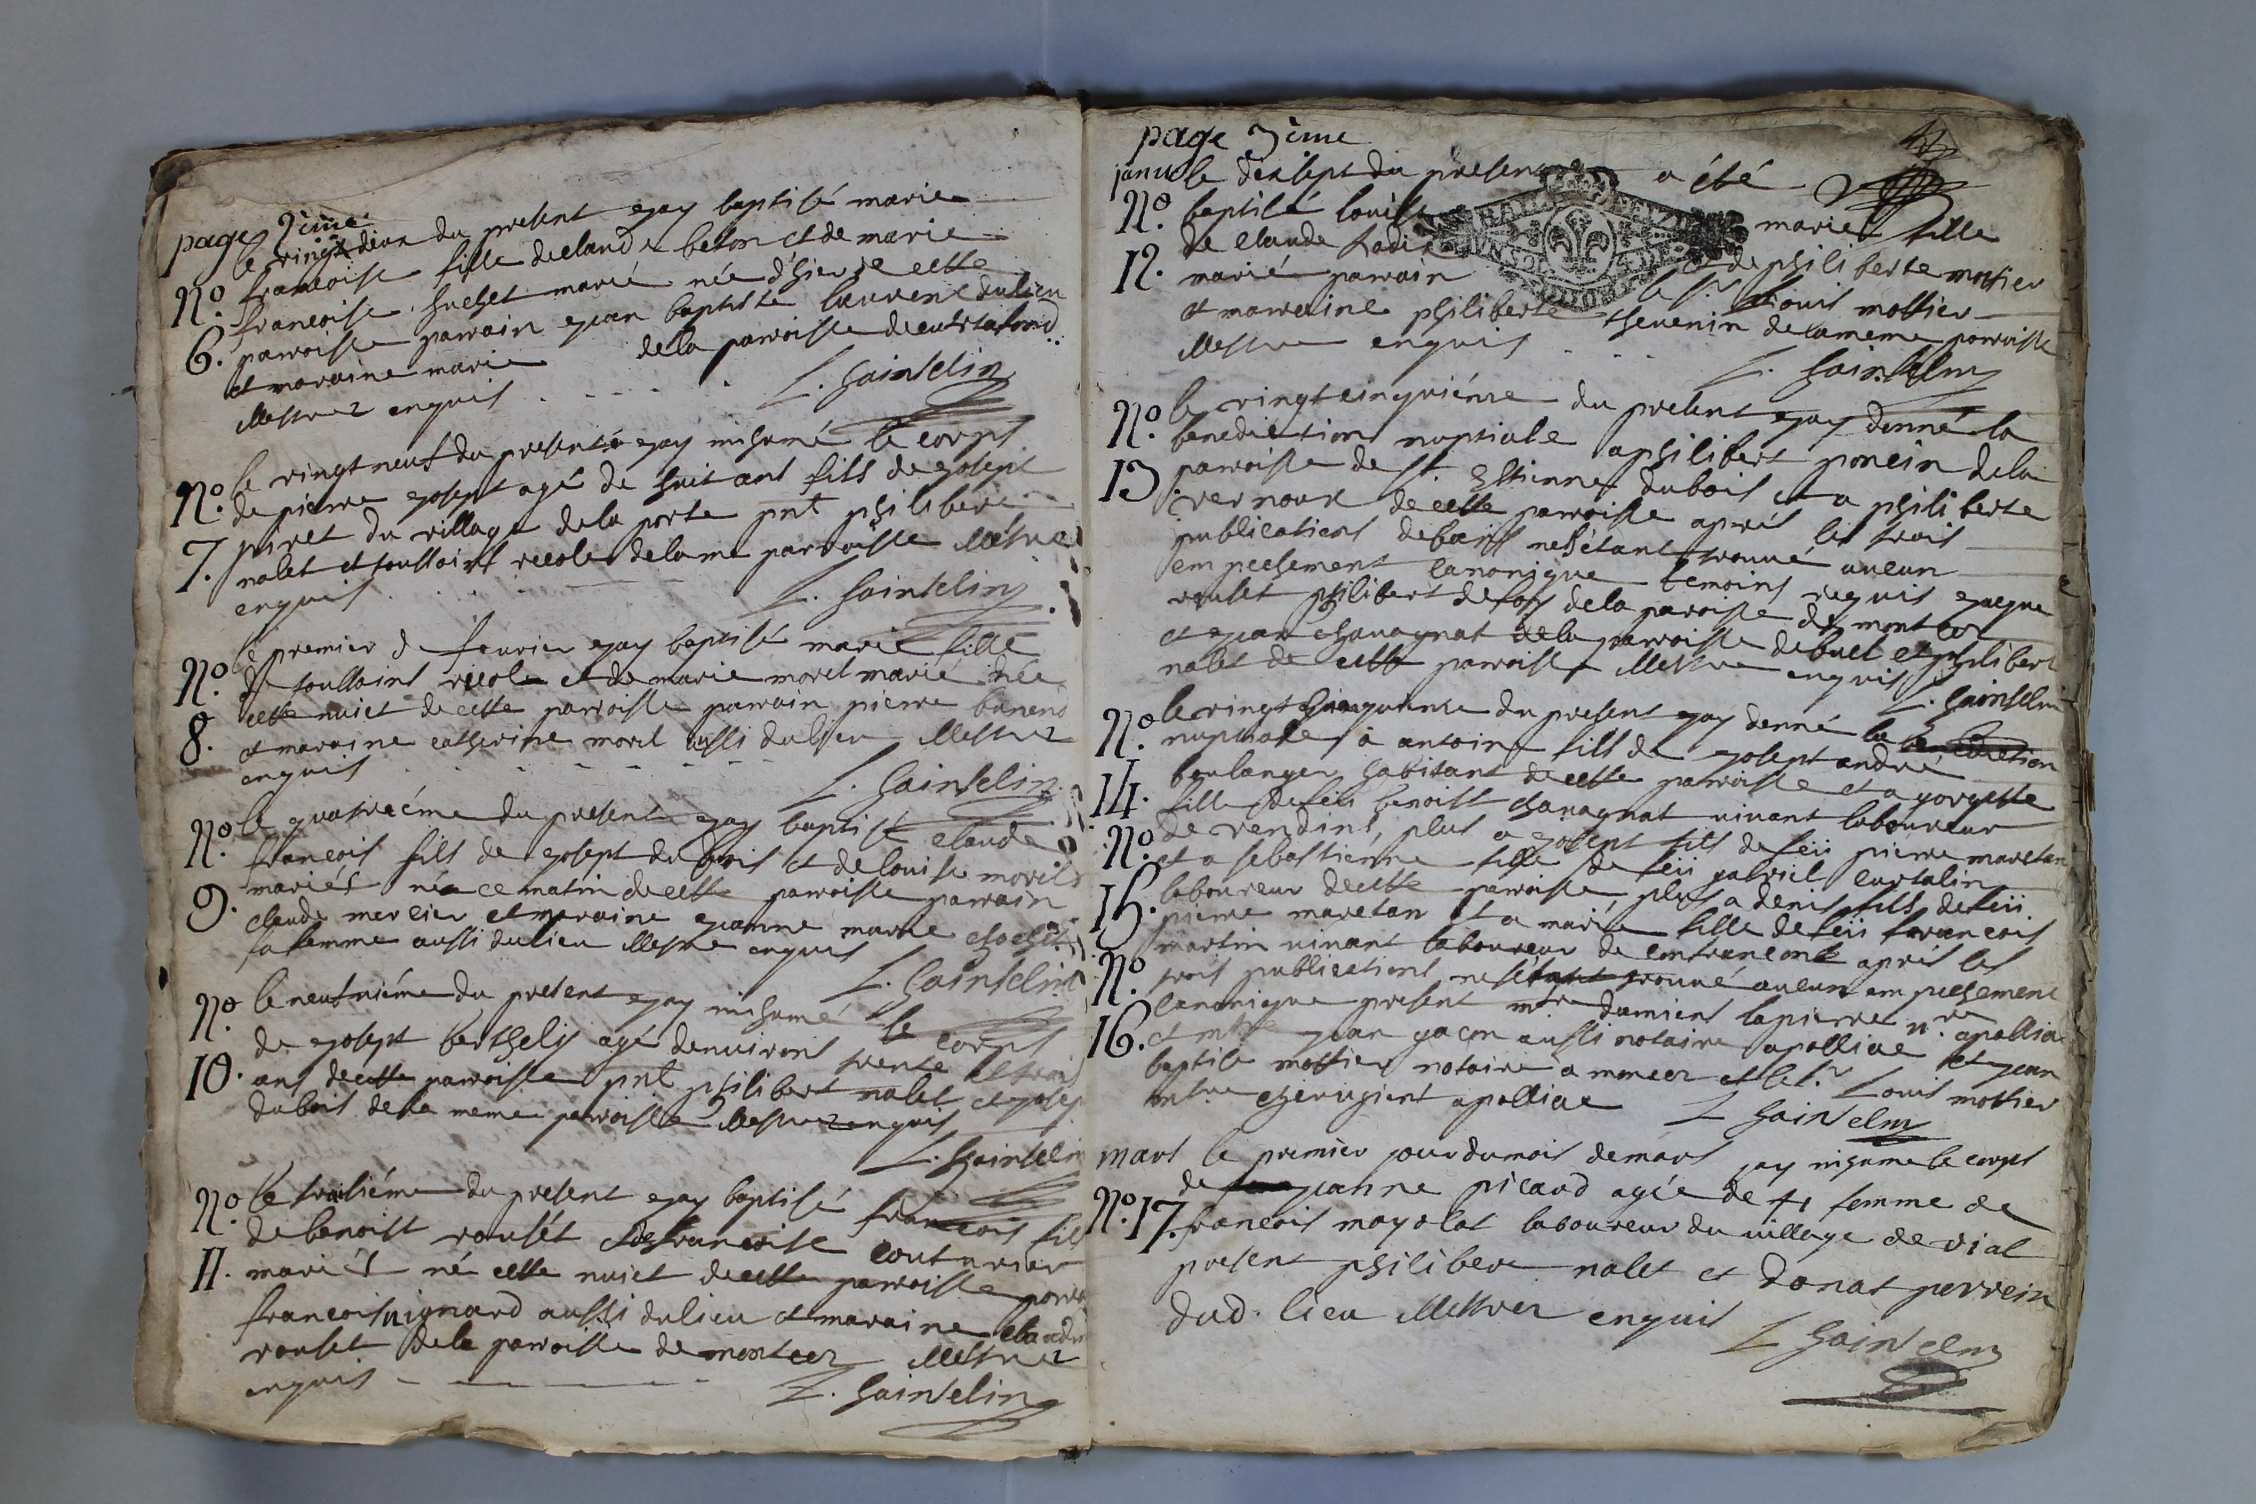 page 2 ime
le vingt deux du present ejay baptisé marie
N.o francoise fille declaude beton et de marie
francoise huchet marié née d'hier de cette
6. parroisse parrain ejean baptiste laurent dulieu
et maraine marie de la parroisse
illettrez enquis L. Gainselin
le vingt neuf du present ejay inhumé le corps
N.o de pierre ejosept agé de huit ans fils de ejosept
7. piret du village dela porte pnt philibere
nalet et toussaint recole delame parroisse
enquis L. Gainselin
le premier d feuvrier ejay baptisé marie fille
N.o de toussaint recole et de marie morel marié née
cette nuict decette parroisse parrain pierre
8. et maraine catherine morel aussi dulieu illettrez
enquis L. Gainselin
le quatreéme du present ejay baptisé claude
N.o francois fils de ejosept du bois et de louise morel
mariés née ce matin decette parroisse parrain
9. claude mercier et maraine ejeanne marie
sa femme aussi dulieu illettre enquis
L. Gainselin
N.o le neufuiéme du present ejay inhumé le corps
de ejosept berthely agé denuiront trente et trois
10. ans decette parroisse pnt philibert nalet et ejosep
dubois dela meme parroisse illettrez enquis
L. Gainselin
N.o le troisiéme du present ejay baptisé francois fils
de benoist rouset et defrancoise couturier
11. mariés né cette nuict decette parroisse parrain
francois uignard aussi dulieu et maraine claudine
rouset dela parroisse de montcez illettrez
enquis L. Gainselin
page 3 ime
januie le dixsept du present a été
N.o baptisé louise marie fille
de claude et de philiberte mottier
12. marié parrain le sr louis mottier
et marraine philiberte theuenin delameme parroisse
illettre enquis L. Gainselin
le vingtcinquiéme du present ejay donné la
N.o benediction nuptiale aphilibert poncin dela
13. parroisse de st. Estienne dubois et a philiberte
vernoux decette parroisse aprés les trois
publications debans nesétant trouué aucun
empeschement canonique temoins requis
rouset philibert dela parroisse de montcez
et ejean chauagnat dela parroisse debuel et philibert
nalet de cette parroisse illettre enquis L. Gainselin
N.o le vingt sinquiéme du present ejay donné la benediction
nuptiale, à antoine fils de ejosept andré
boulanger habitant decette parroisse et a gorgette
14. fille defeü benoist chauagnat uiuant laboureur
N.o de vendins, plus a ejosept fils de feü pierre maretan
et a sebastienne fille de feü gabriel curtalin
15. laboureur decette parroisse, plus a denis fils defeü
pierre maretan et a marie fille defeü francois
martin uiuant laboureur de confrancont aprés les
N.o trois publications nesétant trouué aucun empeschement
canonique present mtre damient lapierre nre apolliac
16. et mtre ejean jacon aussi notaire apolliac et ejean
baptiste mottier notaire a moncez et le sr Louis mottier
mtre chirugient apolliac L Gainselin
mars le premier jour dumois demars jay inhume le corps
de jeanne picard agée de 41 femme de
N.o 17. francois mayolat laboureur du uillage de vial
present philibere nalet et donat perrein
dud. lieu illettrez enquis L Gainselin